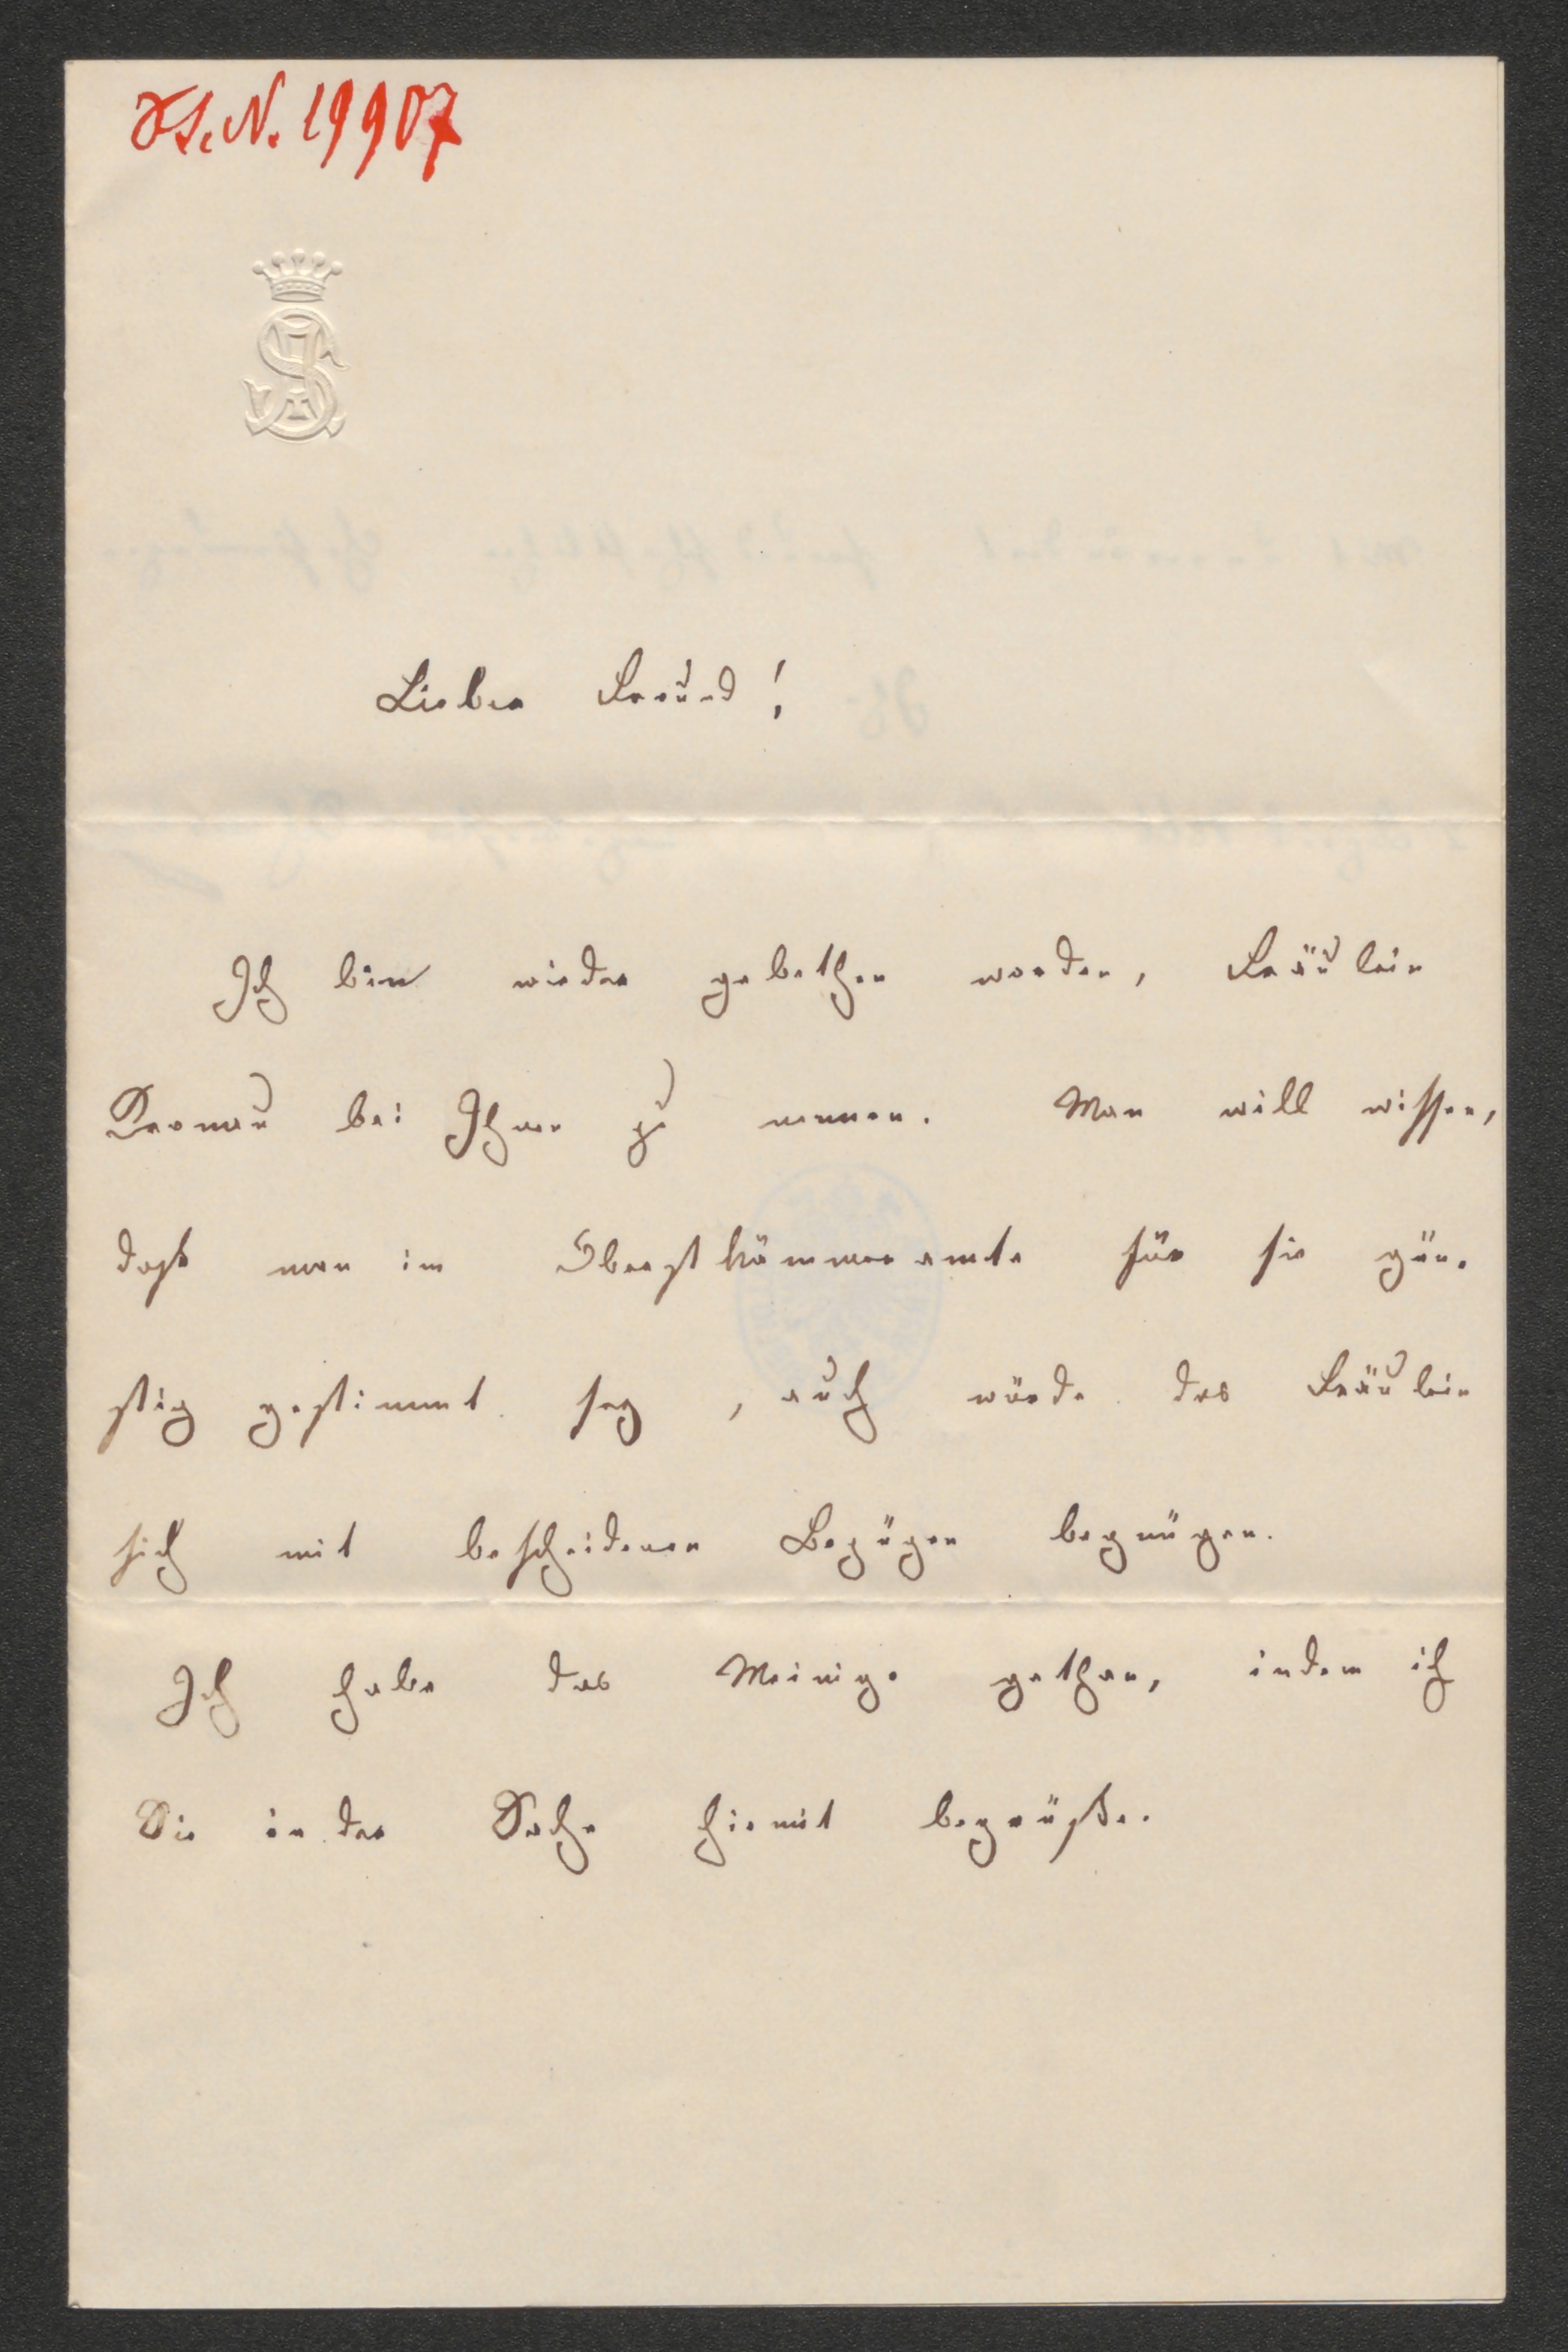 J.N. 19907
Lieber Freund!
Ich bin wieder gebethen worden, Fräulein
bei Ihnen zu nennen. Man will wissen,
daß man im Oberstkämmeramte für sie gün-
stig gestimmt sey, auch würde das Fräulein
sich mit bescheidenen Bezügen begnügen.
Ich habe das Meinige gethan, indem ich
Sie in der Sache hiemit begrüße.